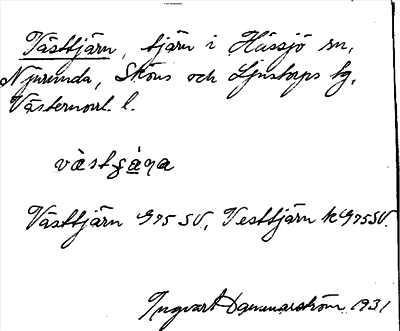 Västtjärn, tjärn i Hässjö sn,
Njurunda, Sköns och Ljustorps tg,
Västernorrl. l.
västʃäɳa
Västtjärn G 75 SV, Vesttjärn k G 75 SV.
Ingvart Dammarström 1931